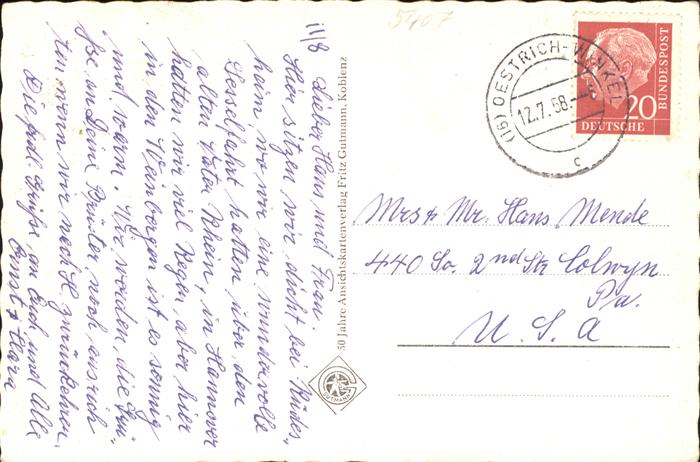 5407
11/8
Lieber Hans und Frau.
Hier sitzen wir dicht bei Rüdes,
heim, wo wir eine wundervolle
Sesselfahrt hatten über den
alten Vater Rhein, in Hannover
hatten wir viel Regen, aber hier
in den Weinbergen ist es sonnig
und warm. Wir werden die Grü,
ße an Deine Brüder noch ausrich
ten, wenn wir nach H. zurückkehren.
Die frdl. Grüße an Euch und Alle
Ernst & Klara
50 Jahre Ansichtskartenverlag Fritz Gutmann, Koblenz
GUTMANN
(16) OESTRICH-WINKEL
12.7.58.-
c
20
DEUTSCHE
BUNDESPOST
Mrs & Mr. Hans Mende
440 So. 2nd Str Colwyn
Pa.
U. S. A